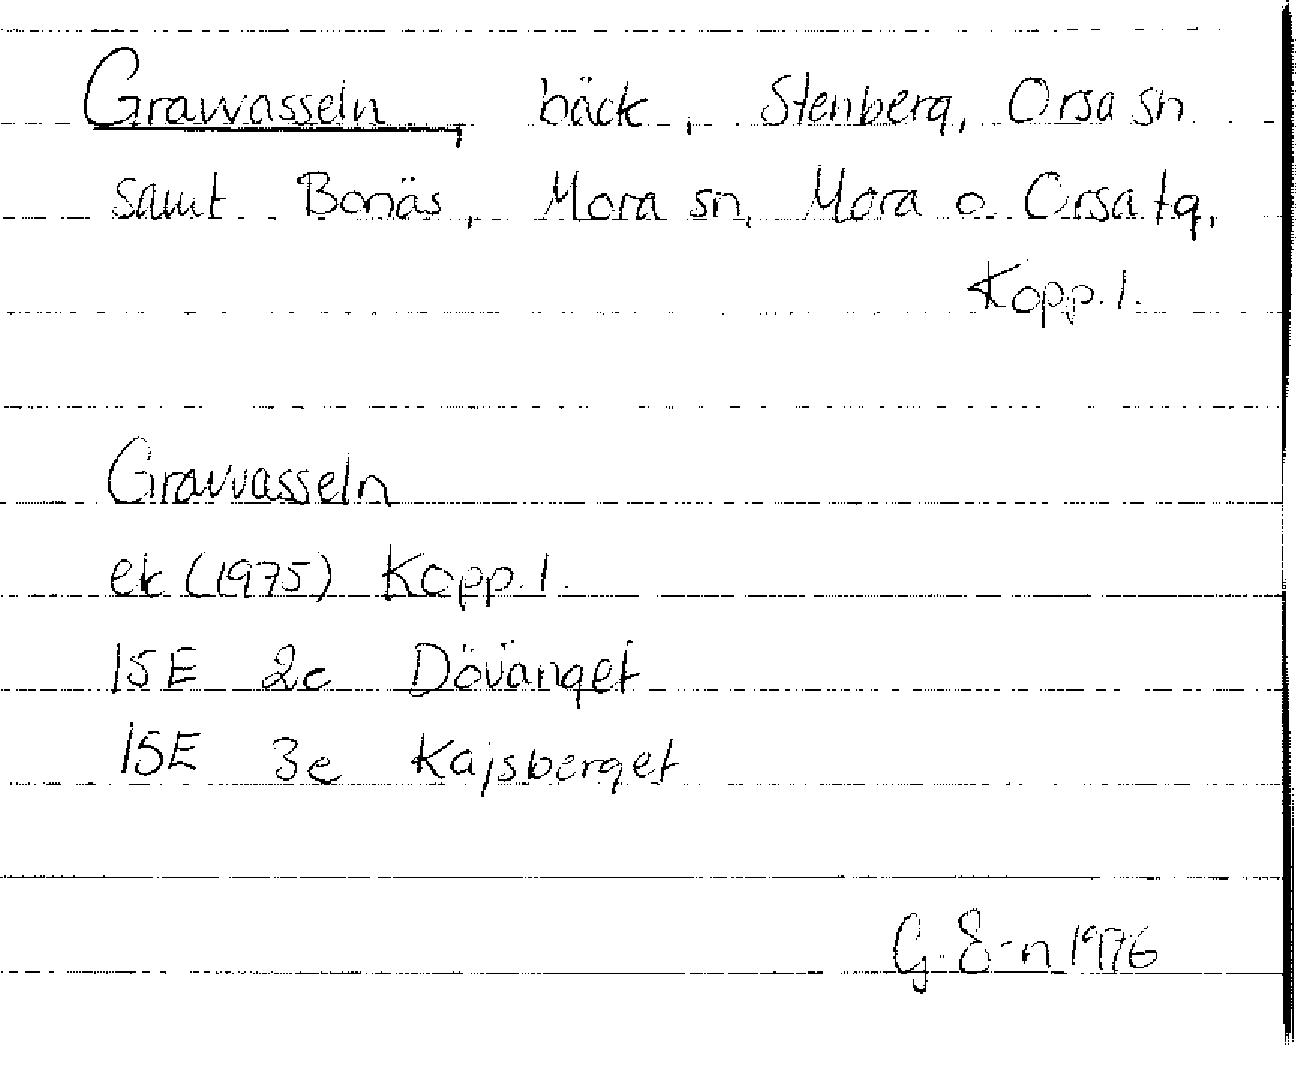 Gravvasseln, bäck, Stenberg, Orsa sn
samt Bonäs, Mora sn, Mora o Orsa tg,
Kopp. l.
Gravvasseln
ek (1975) Kopp. l.
15E 2c Dövänget
15E 3e Kajsberget
G. E-n 1976